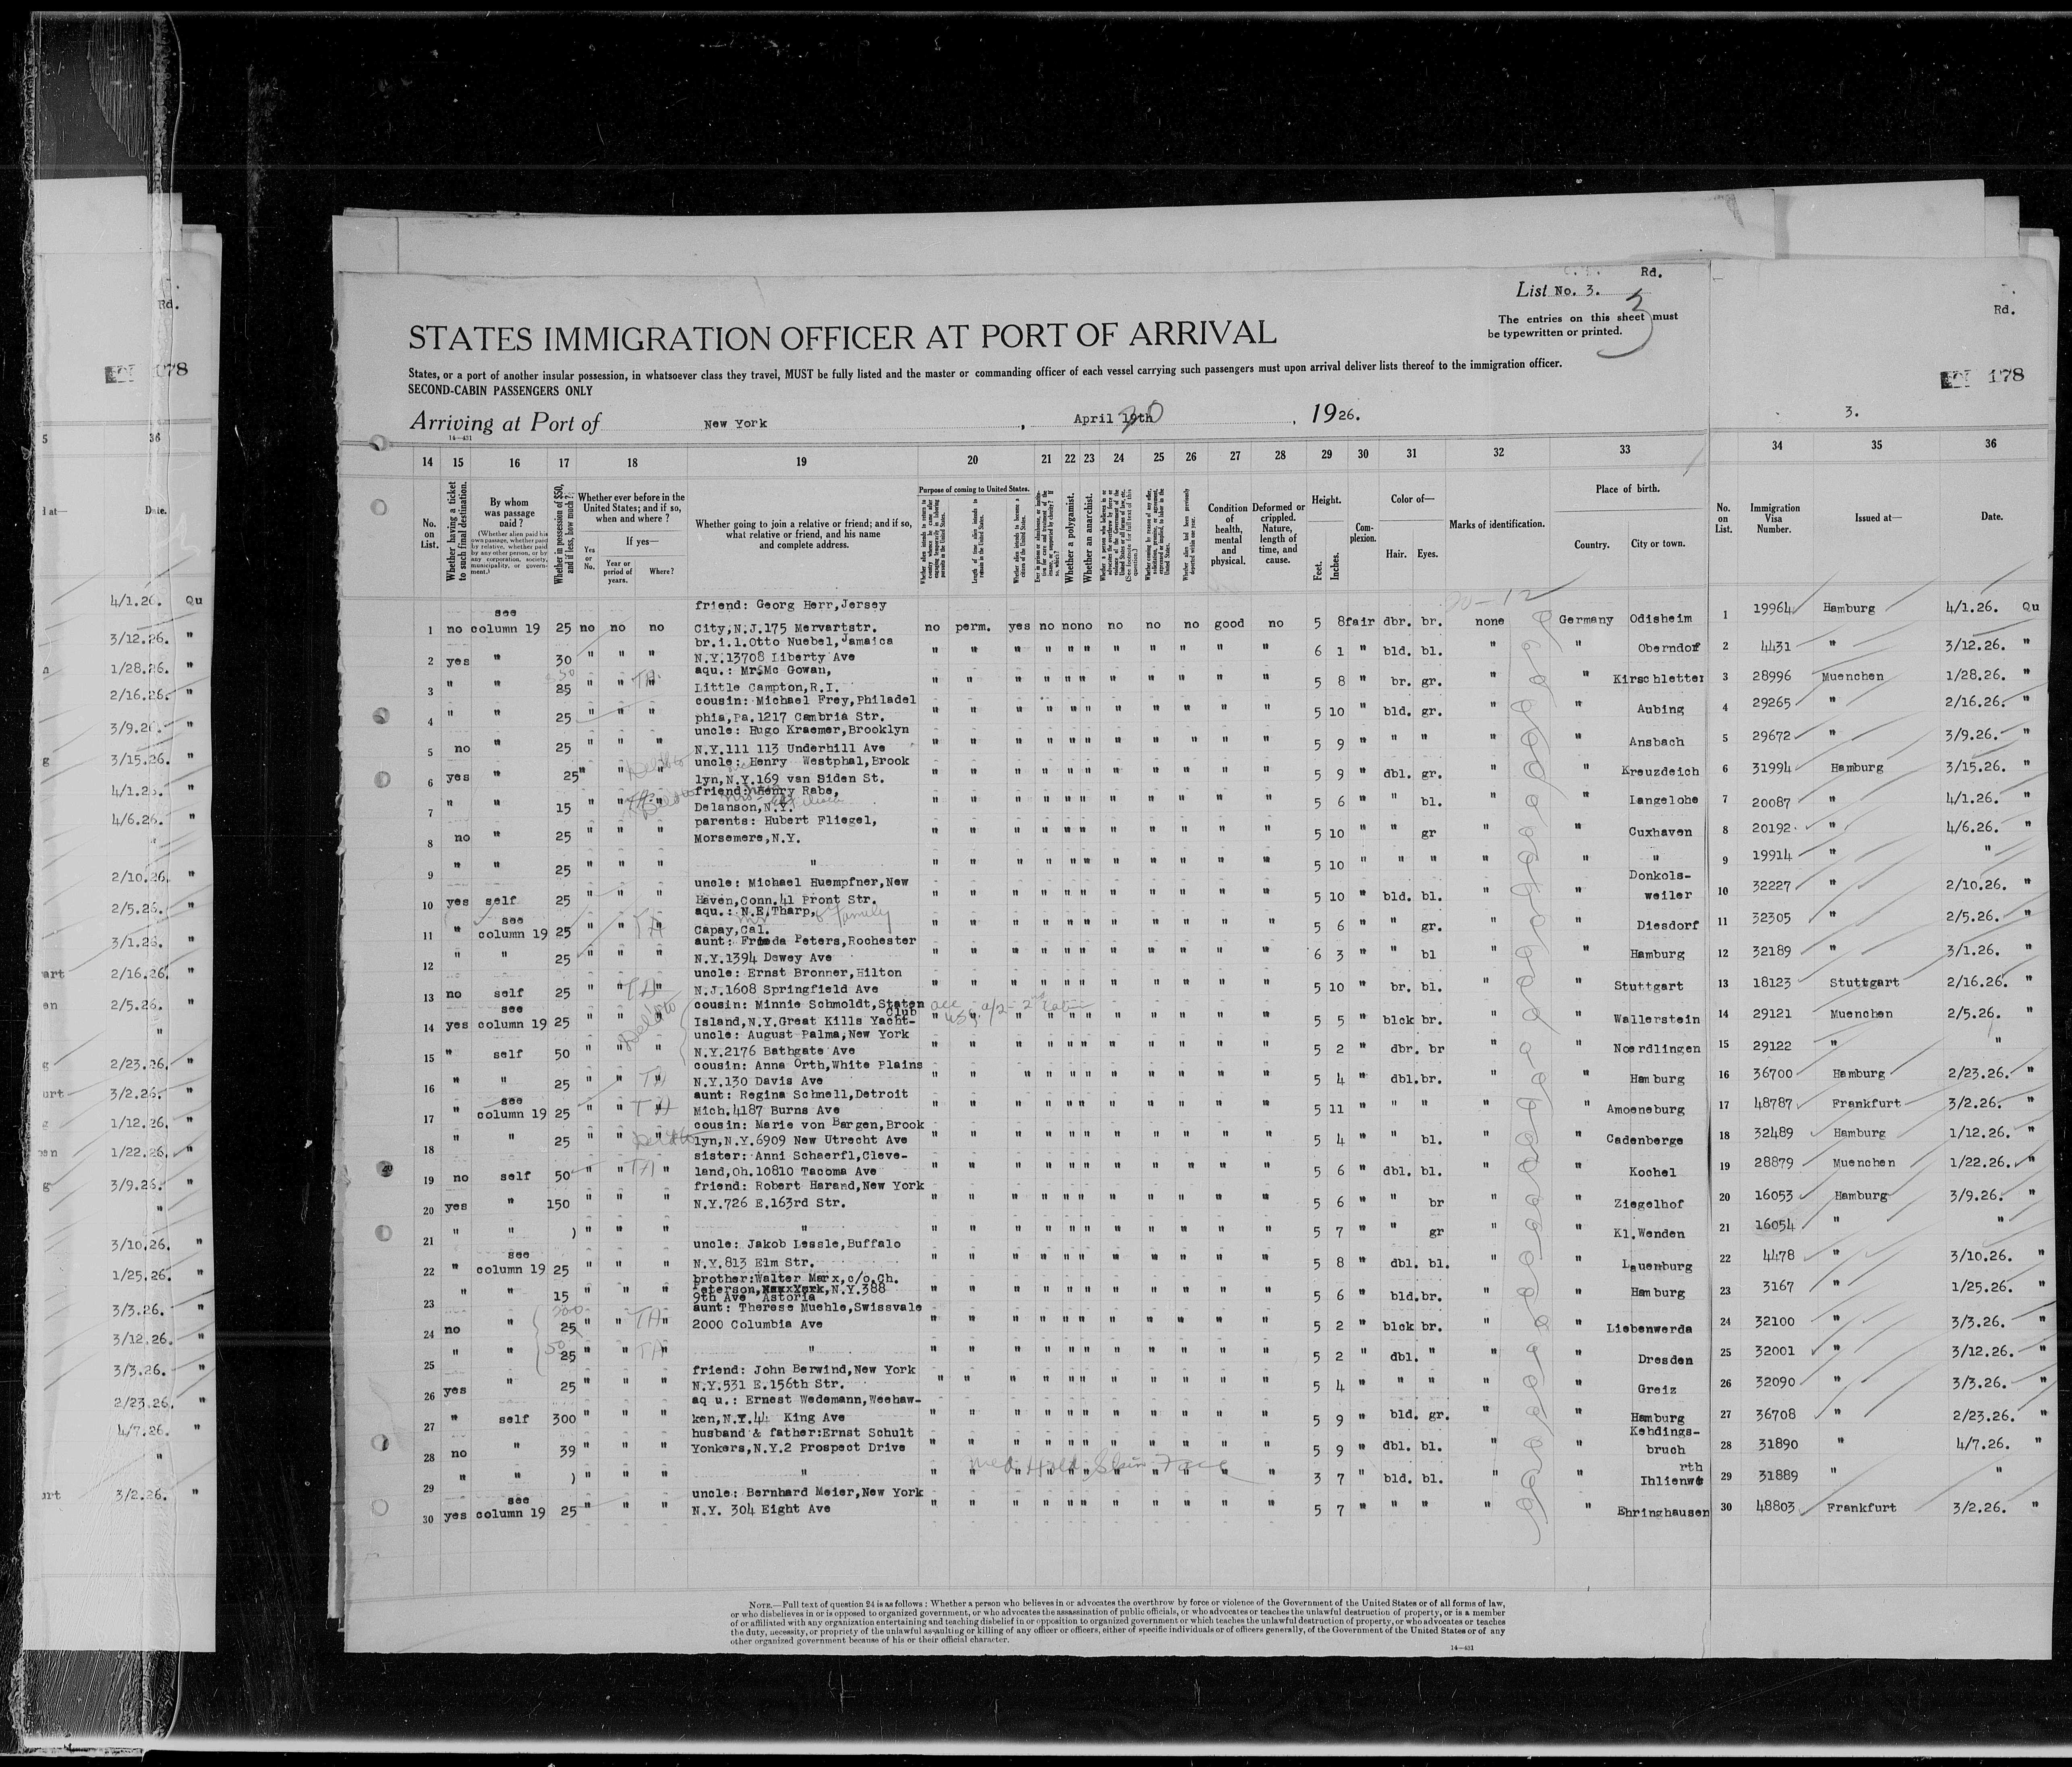 Rd.
List No. 3.
3
The entries on this sheet must
be typewritten or printed.
STATES IMMIGRATION OFFICER AT PORT OF ARRIVAL
States, or a port of another insular possession, in whatsoever class they travel, MUST be fully listed and the master or commanding officer of each vessel carrying such passengers must upon arrival deliver lists thereof to the immigration officer.
SECOND-CABIN PASSENGERS ONLY
Arriving at Port of New York, April 19th 20, 1926.
14—431
14 15 16 17 18 19 20 21 22 23 24 25 26 27 28 29 30 31 32 33
No. on List.
Whether having a ticket to such final destination.
By whom was passage paid?
(Whether alien paid his own passage, whether paid by relative, whether paid by any other person, or by any corporation, society, municipality, or government.)
Whether in possession of $50, and if less, how much?
Whether ever before in the United States; and if so, when and where?
If yes—
Yes or No.
Year or period of years.
Where?
Whether going to join a relative or friend; and if so, what relative or friend, and his name and complete address.
Purpose of coming to United States.
Length of time alien intends to remain in the United States.
Whether alien intends to become a citizen of the United States.
Whether a polygamist.
Whether an anarchist.
Condition of health, mental and physical.
Deformed or crippled. Nature, length of time, and cause.
Height.
Feet. Inches.
Complexion.
Color of—
Hair. Eyes.
Marks of identification.
Place of birth.
Country. City or town.
friend: Georg Herr,Jersey
see
1 no column 19 25 no no no City,N.J.175 Mervartstr. no perm. yes no no no no no no good no 5 8 fair dbr. br. none Germany Odisheim
br.i.l.Otto Nuebel,Jamaica
2 yes " 30 " " " N.Y.13708 Liberty Ave " " " " " " " " " " " 6 1 " bld. bl. " " Oberndorf
aqu.: Mrs Mc Gowan,
3 " " 25 " " " Little Campton,R.I. " " " " " " " " " " " 5 8 " br. gr. " " Kirschletter
cousin: Michael Frey,Philadel
4 " " 25 " " " phia,Pa.1217 Cambria Str. " " " " " " " " " " " 5 10 " bld. gr. " " Aubing
uncle: Hugo Kraemer,Brooklyn
5 no " 25 " " " N.Y.111 113 Underhill Ave " " " " " " " " " " " 5 9 " " " " " Ansbach
uncle: Henry Westphal,Brook
6 yes " 25 " " " lyn,N.Y.169 van Siden St. " " " " " " " " " " " 5 9 " dbl. gr. " " Kreuzdeich
friend:Henry Rabe,
7 " " 15 " " " Delanson,N.Y. " " " " " " " " " " " 5 6 " " bl. " " Langelohe
parents: Hubert Fliegel,
8 no " 25 " " " Morsemere,N.Y. " " " " " " " " " " " 5 10 " " gr " " Cuxhaven
9 " " 25 " " " " " " " " " " " " " " " 5 10 " " " " " "
uncle: Michael Huempfner,New Donkols-
10 yes self 25 " " " Haven,Conn.41 Front Str. " " " " " " " " " " " 5 10 " bld. bl. " " weiler
see aqu.: N.E.Tharp, & family
11 " column 19 25 " " TA " Capay,Cal. " " " " " " " " " " " 5 6 " " gr. " " Diesdorf
aunt: Frieda Peters,Rochester
12 " " 25 " " " N.Y.1394 Dewey Ave " " " " " " " " " " " 6 3 " " bl " " Hamburg
uncle: Ernst Bronner,Hilton
13 no self 25 " " TA " N.J.1608 Springfield Ave " " " " " " " " " " " 5 10 " br. bl. " " Stuttgart
see cousin: Minnie Schmoldt,Staten
Club
14 yes column 19 25 " " " Island,N.Y.Great Kills Yacht- " " " " " " " " " " " 5 5 " blck br. " " Wallerstein
uncle: August Palma,New York
15 " self 50 " " " N.Y.2176 Bathgate Ave " " " " " " " " " " " 5 2 " dbr. br " " Noerdlingen
cousin: Anna Orth,White Plains
16 " " 25 " " TA " N.Y.130 Davis Ave " " " " " " " " " " " 5 4 " dbl. br. " " Hamburg
see aunt: Regina Schnell,Detroit
17 " column 19 25 " " TA " Mich.4187 Burns Ave " " " " " " " " " " " 5 11 " " " " " Amoeneburg
cousin: Marie von Bargen,Brook
18 " " 25 " " " lyn,N.Y.6909 New Utrecht Ave " " " " " " " " " " " 5 4 " " bl. " " Cadenberge
sister: Anni Schaerfl,Cleve-
19 no self 50 " " TA " land,Oh.10810 Tacoma Ave " " " " " " " " " " " 5 6 " dbl. bl. " " Kochel
friend: Robert Harand,New York
20 yes " 150 " " " N.Y.726 E.163rd Str. " " " " " " " " " " " 5 6 " " br " " Ziegelhof
21 " " ) " " " " " " " " " " " " " " " 5 7 " " gr " " Kl.Wenden
see uncle: Jakob Lessle,Buffalo
22 " column 19 25 " " " N.Y.813 Elm Str. " " " " " " " " " " " 5 8 " dbl. bl. " " Lauenburg
brother:Walter Marx,c/o.Ch.
Peterson,NewxYork,N.Y.388
23 " " 15 " " " 9th Ave Astoria " " " " " " " " " " " 5 6 " bld. br. " " Hamburg
aunt: Therese Muehle,Swissvale
24 no " 25 " " TA " 2000 Columbia Ave " " " " " " " " " " " 5 2 " blck br. " " Liebenwerda
25 " " 25 " " TA " " " " " " " " " " " " " 5 2 " dbl. " " " Dresden
friend: John Berwind,New York
26 yes " 25 " " " N.Y.531 E.156th Str. " " " " " " " " " " " 5 4 " " " " " Greiz
aqu.: Ernest Wedemann,Weehaw-
27 " self 300 " " " ken,N.Y.44 King Ave " " " " " " " " " " " 5 9 " bld. gr. " " Hamburg
husband & father:Ernst Schult Kehdings-
28 no " 39 " " " Yonkers,N.Y.2 Prospect Drive " " " " " " " " " " " 5 9 " dbl. bl. " " bruch
Med. Hold Skin Face rth
29 " " ) " " " " " " " " " " " " " " " 3 7 " bld. bl. " " Ihlienwo
see uncle: Bernhard Meier,New York
30 yes column 19 25 " " " N.Y. 304 Eight Ave " " " " " " " " " " " 5 7 " " " " " Ehringhausen
NOTE.—Full text of question 24 is as follows: Whether a person who believes in or advocates the overthrow by force or violence of the Government of the United States or of all forms of law,
or who disbelieves in or is opposed to organized government, or who advocates the assassination of public officials, or who advocates or teaches the unlawful destruction of property, or is a member
of or affiliated with any organization entertaining and teaching disbelief in or opposition to organized government or which teaches the unlawful destruction of property, or who advocates or teaches
the duty, necessity, or propriety of the unlawful assaulting or killing of any officer or officers, either of specific individuals or of officers generally, of the Government of the United States or of any
other organized government because of his or their official character.
14—431
Rd.
178
3.
34 35 36
No. on List.
Immigration Visa Number.
Issued at—
Date.
1 19964 Hamburg 4/1.26. Qu
2 4431 " 3/12.26. "
3 28996 Muenchen 1/28.26. "
4 29265 " 2/16.26. "
5 29672 " 3/9.26. "
6 31994 Hamburg 3/15.26. "
7 20087 " 4/1.26. "
8 20192 " 4/6.26. "
9 19914 " "
10 32227 " 2/10.26. "
11 32305 " 2/5.26. "
12 32189 " 3/1.26. "
13 18123 Stuttgart 2/16.26. "
14 29121 Muenchen 2/5.26. "
15 29122 " "
16 36700 Hamburg 2/23.26. "
17 48787 Frankfurt 3/2.26. "
18 32489 Hamburg 1/12.26. "
19 28879 Muenchen 1/22.26. "
20 16053 Hamburg 3/9.26. "
21 16054 " "
22 4478 " 3/10.26. "
23 3167 " 1/25.26. "
24 32100 " 3/3.26. "
25 32001 " 3/12.26. "
26 32090 " 3/3.26. "
27 36708 " 2/23.26. "
28 31890 " 4/7.26. "
29 31889 " "
30 48803 Frankfurt 3/2.26. "
Rd.
078
5 36
d at— Date.
4/1.26. Qu
3/12.26. "
1/28.26. "
2/16.26. "
3/9.26. "
3/15.26. "
4/1.26. "
4/6.26. "
"
2/10.26. "
2/5.26. "
3/1.26. "
art 2/16.26. "
en 2/5.26. "
"
g 2/23.26. "
urt 3/2.26. "
g 1/12.26. "
en 1/22.26. "
g 3/9.26. "
"
3/10.26. "
1/25.26. "
3/3.26. "
3/12.26. "
3/3.26. "
2/23.26. "
4/7.26. "
"
urt 3/2.26. "